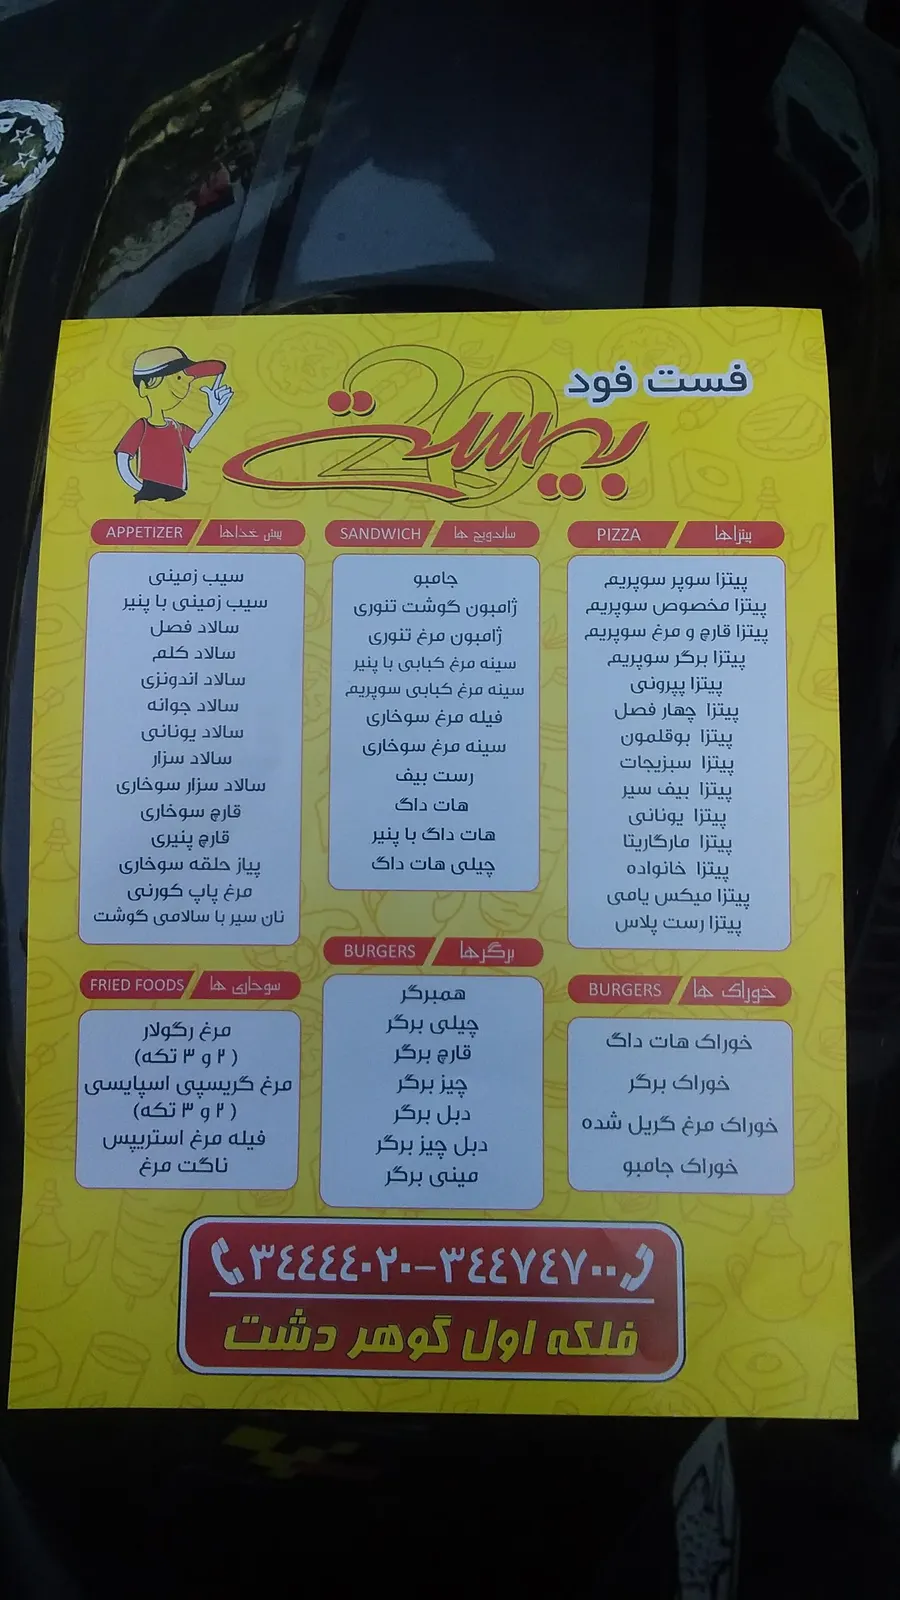 فست فود
بیست
20
پیتزاها / PIZZA
پیتزا سوپر سوپریم
پیتزا مخصوص سوپریم
پیتزا قارچ و مرغ سوپریم
پیتزا برگر سوپریم
پیتزا پپرونی
پیتزا چهار فصل
پیتزا بوقلمون
پیتزا سبزیجات
پیتزا بیف سیر
پیتزا یونانی
پیتزا مارگاریتا
پیتزا خانواده
پیتزا میکس یامی
پیتزا رست پلاس
ساندویچ ها / SANDWICH
جامبو
ژامبون گوشت تنوری
ژامبون مرغ تنوری
سینه مرغ کبابی با پنیر
سینه مرغ کبابی سوپریم
فیله مرغ سوخاری
سینه مرغ سوخاری
رست بیف
هات داگ
هات داگ با پنیر
چیلی هات داگ
پیش غذاها / APPETIZER
سیب زمینی
سیب زمینی با پنیر
سالاد فصل
سالاد کلم
سالاد اندونزی
سالاد جوانه
سالاد یونانی
سالاد سزار
سالاد سزار سوخاری
قارچ سوخاری
قارچ پنیری
پیاز حلقه سوخاری
مرغ پاپ کورنی
نان سیر با سالامی گوشت
خوراک ها / BURGERS
خوراک هات داگ
خوراک برگر
خوراک مرغ گریل شده
خوراک جامبو
برگرها / BURGERS
همبرگر
چیلی برگر
قارچ برگر
چیز برگر
دبل برگر
دبل چیز برگر
مینی برگر
سوخاری ها / FRIED FOODS
مرغ رگولار
(۲ و ۳ تکه)
مرغ گریسپی اسپایسی
(۲ و ۳ تکه)
فیله مرغ استریپس
ناگت مرغ
۳۴۴۴۴۰۲۰-۳۴۴۷۴۷۰۰
فلکه اول گوهر دشت